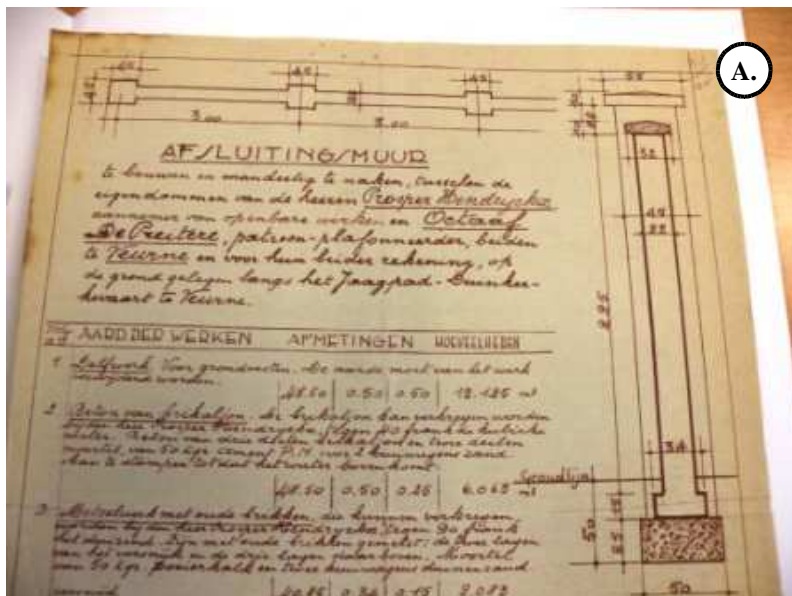 A.
45
45
45
55
45
3.00
3.00
AFSLUITINGSMUUR
te bouwen en wanderlig te maken, tusschen de
eigendommen van de heeren Prosper Hendryckx
aannemer van openbare werken en Octaaf
De Preitere, patroon-plafonneerder, beiden
te Veurne en voor hun beider rekening, op
de grond gelegen langs het Jaagpad-Duinker-
kevaart te Veurne.
32
45
22
225
AARD DER WERKEN AFMETINGEN HOEVEELHEDEN
1 Delfwerk Voor grondvesten. De aarde moet van het werk
worden.
48.50 0.50 0.50 12.125 m³
2 Beton van brikaljon. De brikaljon kan verkregen worden
bij den heer Prosper Hendryckx, tegen 40 frank de kubieke
meter. Beton van drie deelen brikaljon en twee deelen
mortel van 50 kgr. cement P.N. voor 2 kruiwagens zand
Aan te stampen tot dat het water boven komt.
48.50 0.50 0.25 6.063 m³
34
Grondlijn
15
50
25
50
3 Metselwerk met oude brikken, die kunnen verkregen
worden bij den heer Prosper Hendryckx, tegen 90 frank
het duizend. Zijn met oude brikken gemetst: de twee lagen
van het versnijk en de drie lagen daarboven. Mortel
van 50 kgr. poeierkalk en twee kruiwagens duinenzand
40.85 0.34 0.15 2.083